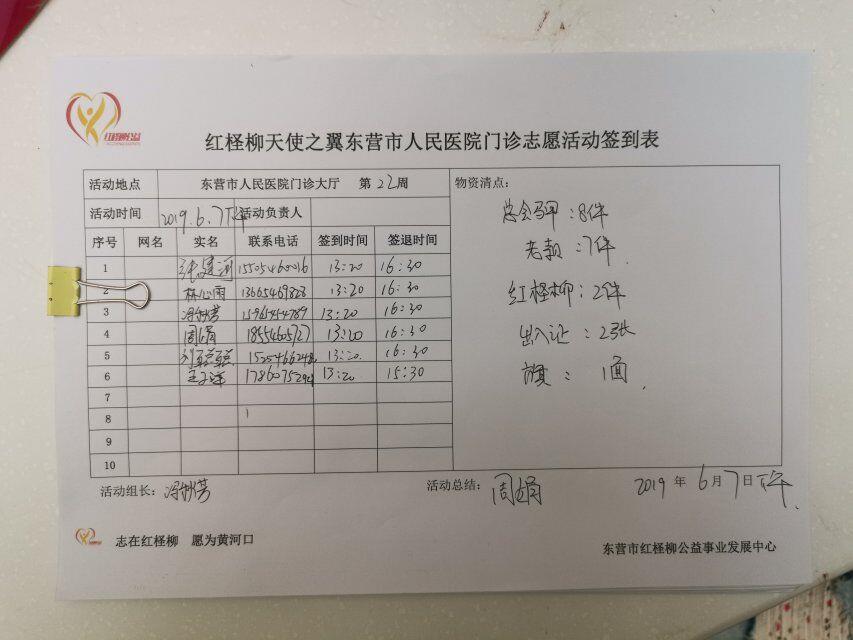 红柽柳公益
红柽柳天使之翼东营市人民医院门诊志愿活动签到表
活动地点 东营市人民医院门诊大厅 第22周 物资清点：
活动时间 2019.6.7下午 活动负责人
总会马甲：8件
序号 网名 实名 联系电话 签到时间 签退时间
老款：7件
1 15054600016 13:20 16:30
2 林心雨 13665469823 13:20 16:30
红柽柳：2件
3 冯秋芳 15965454789 13:20 16:30
4 周娟 18554605727 13:20 16:30
出入证：2张
5 13:20 16:30
6 13:20 15:30
旗：1面
7
8
9
10
活动组长：冯秋芳 活动总结：周娟 2019年6月7日下午
志在红柽柳 愿为黄河口
东营市红柽柳公益事业发展中心